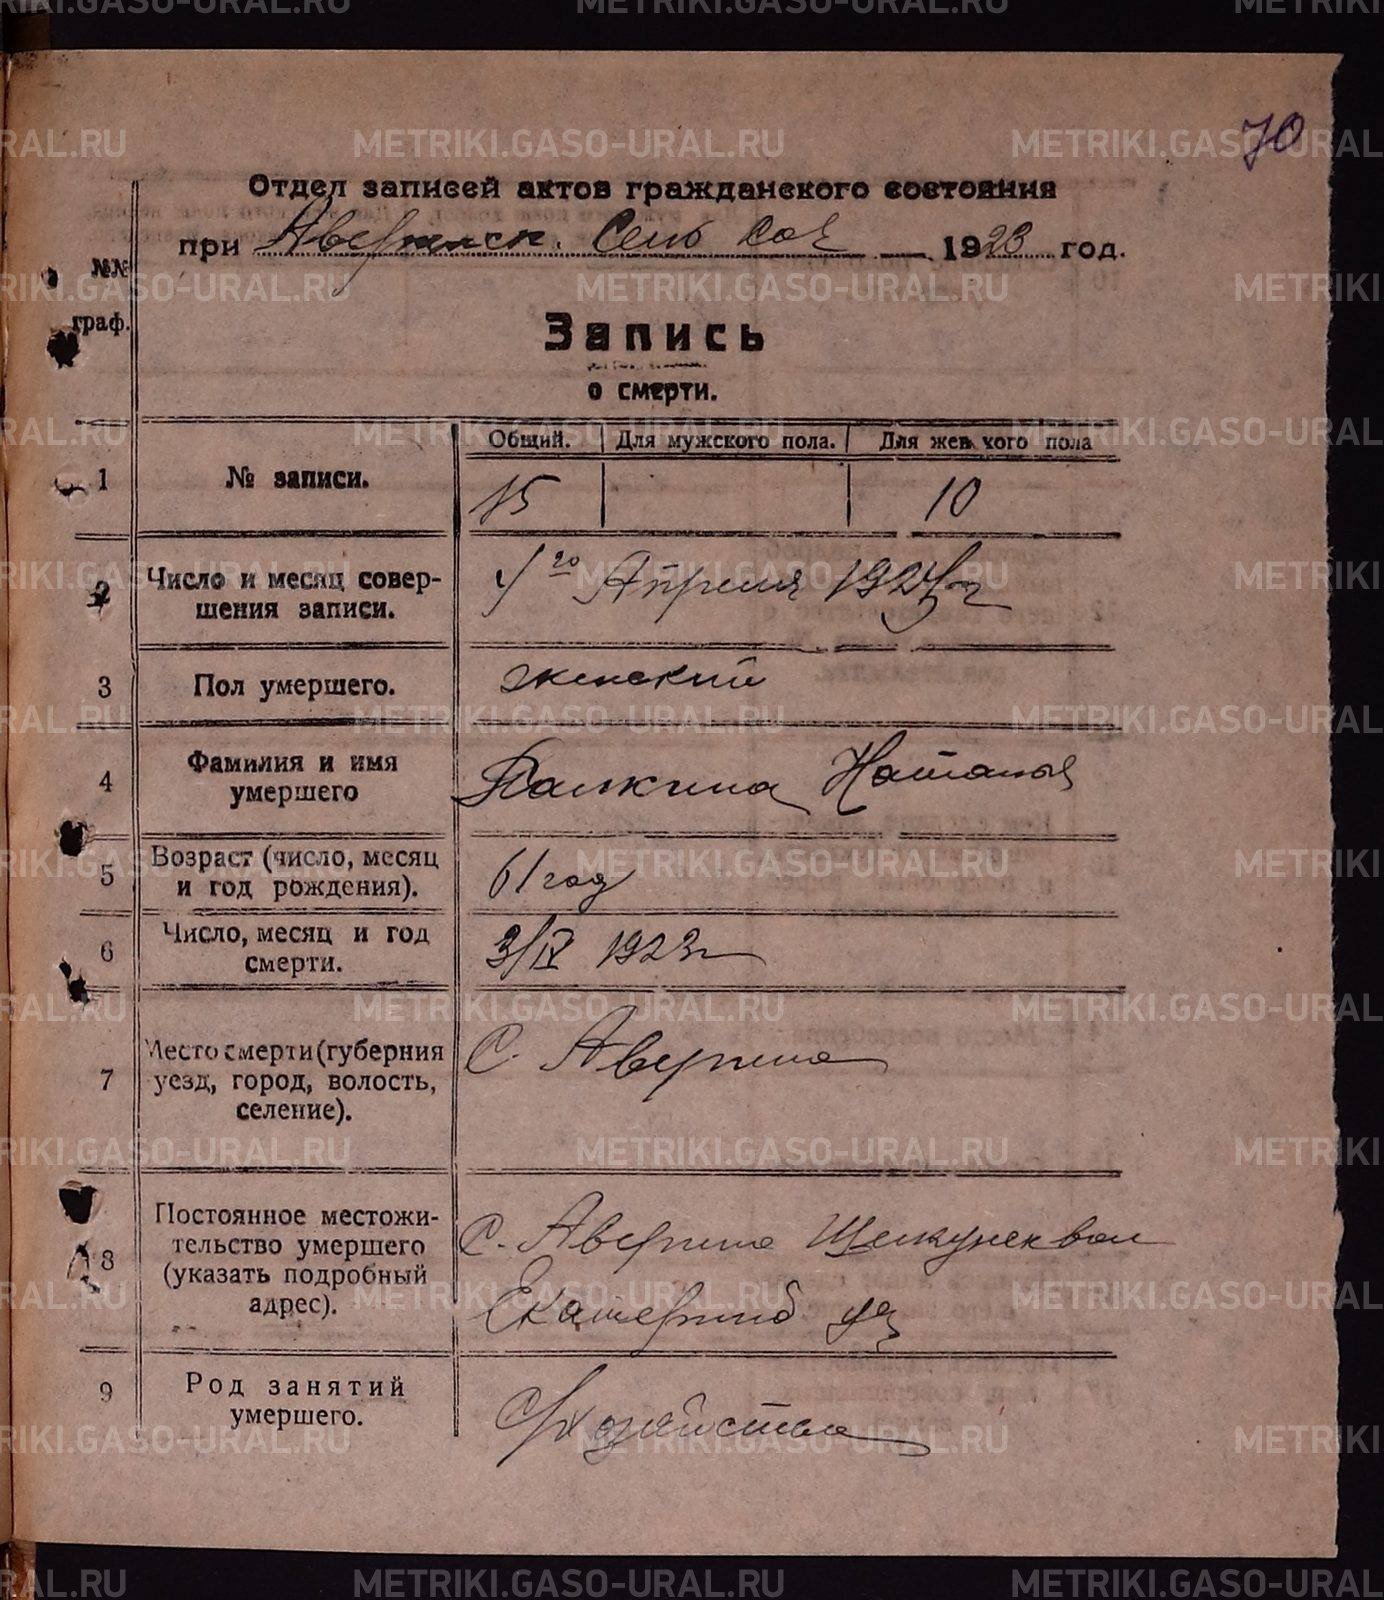 70
Отдел записей актов гражданского состояния
при Аверинск. Сель Сов 1923 год.
№№ граф.
Запись
о смерти.
Общий. Для мужского пола. Для женского пола
1 № записи. 15 10
2 Число и месяц совер-
шения записи. 4го Апреля 1923 г
3 Пол умершего. женский
4 Фамилия и имя
умершего Палкина Наталья
5 Возраст (число, месяц
и год рождения). 61 год
6 Число, месяц и год
смерти. 3/IV 1923 г
7 Место смерти (губерния
уезд, город, волость,
селение). С. Аверина
8 Постоянное местожи-
тельство умершего
(указать подробный
адрес). С. Аверина Щелкунск вол
Екатеринб уез
9 Род занятий
умершего.
METRIKI.GASO-URAL.RU